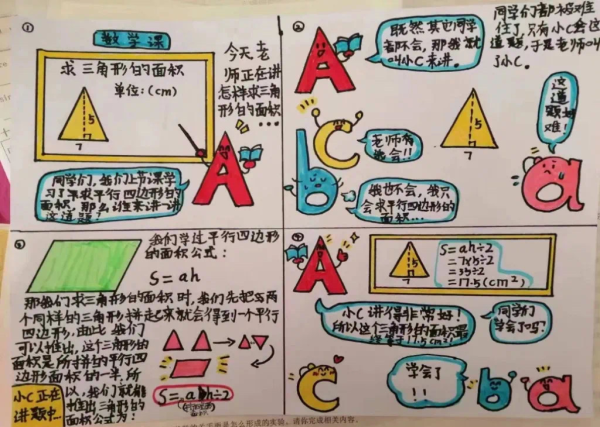 ①
数学课
求三角形的面积
单位:(cm)
5
7
今天老
师正在讲
怎样求三角
形的面积
...
同学们,我们上节课学
习了平求平行四边形的
面积,那么谁来讲一讲
这道题?
②
既然其它同学
都不会,那我就
叫小C来讲。
同学们都被难
住了,只有小C会这
道题,于是老师叫
了小C。
5
7
这道
题好
难!
老师我
会!!
我也不会,我只
会求平行四边形的
面积...
③
我们学过平行四边形
的面积公式:
S=ah
那我们求三角形的面积时,我们先把两
个同样的三角形拼起来就会得到一个平行
四边形,由此我们
可以推出,这个三角形的
面积是所拼的平行四
边形面积的一半,所
以,我们就能
推出三角形的
面积公式为:
S=ah÷2
小C正在
讲题中...
④
5
7
S=ah÷2
=7×5÷2
=35÷2
=17.5(cm²)
小C讲得非常好!
所以这个三角形的面积最
终等于17.5cm²!
同学们
学会了吗?
学会了
!!
是怎么形成的实验,请你完成相关内容。